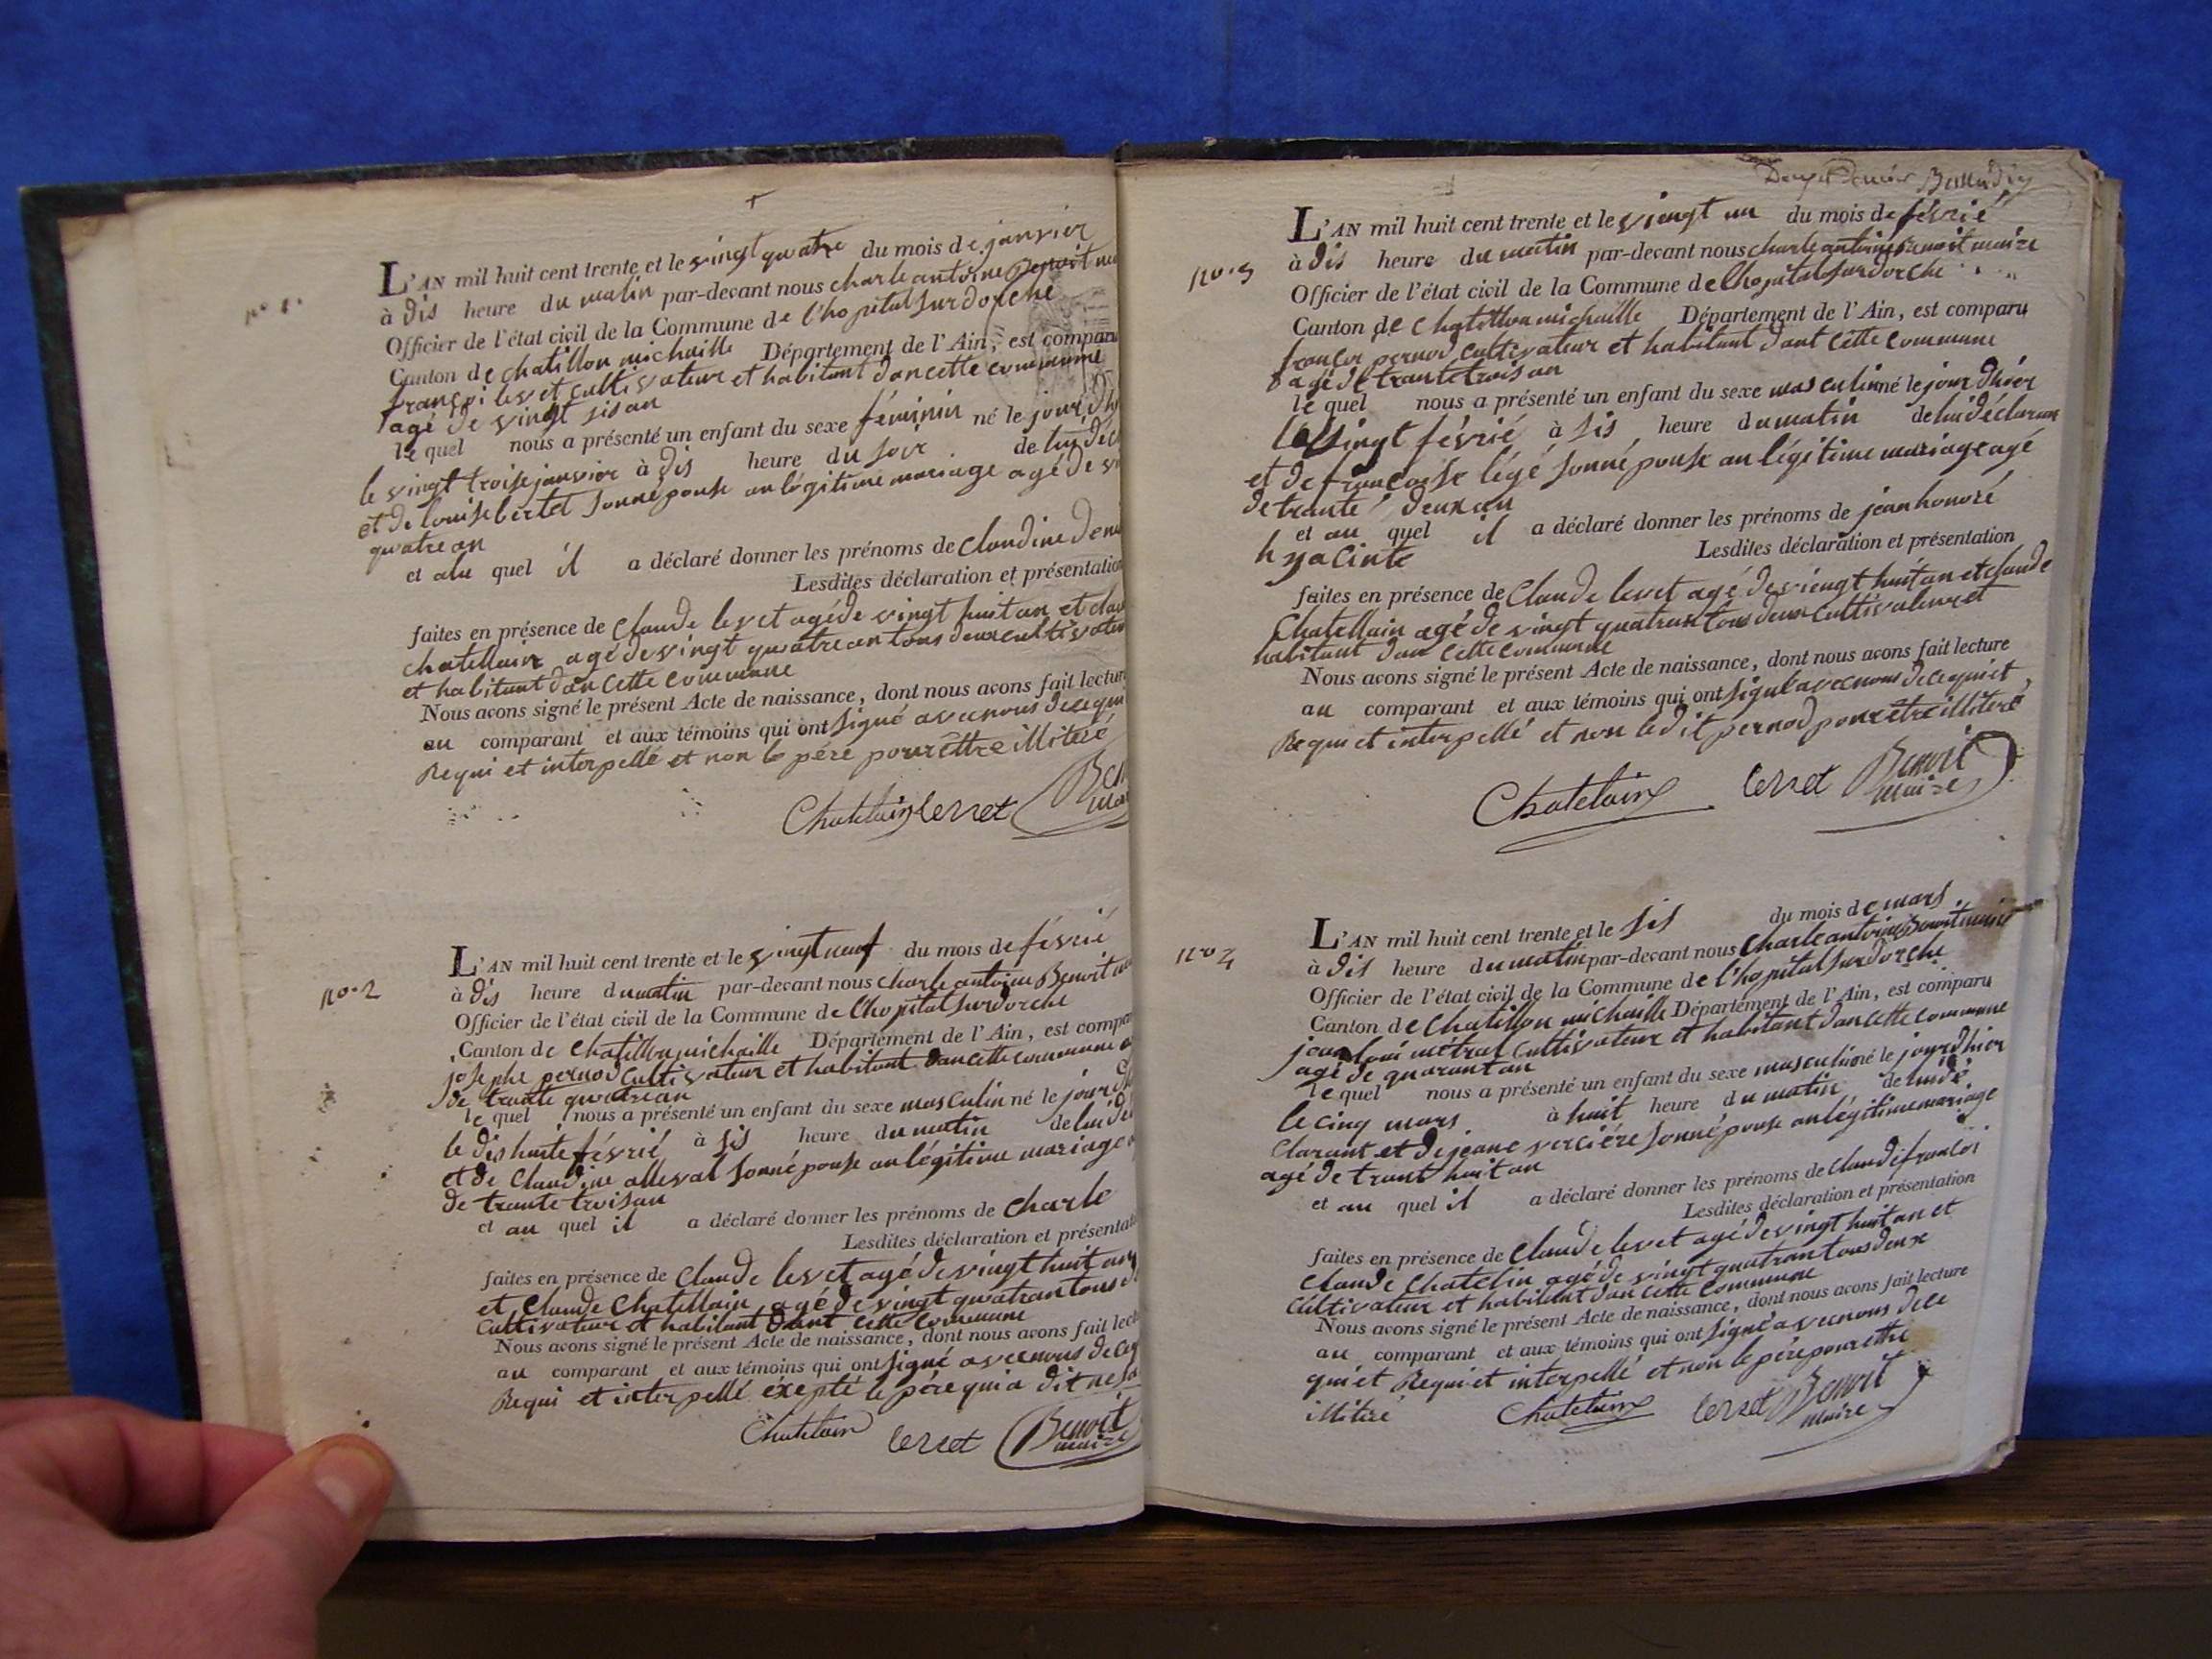 n° 1.
L'AN mil huit cent trente et le vingt quatre du mois de janvier
à dis heure du matin par-devant nous charle antoine Benoit
Officier de l'état civil de la Commune de l'hopital sur dorche
Canton de chatillon michaille Département de l'Ain, est comparu
françoi levet cultivateur et habitant dan cette commune
agé de vingt sis an
le quel nous a présenté un enfant du sexe féminin né le jour
le vingt troise janvier à dis heure du soir de luy
et de louise bertet sonné pouse an légitime mariage agé de
quatre an
et alu quel il a déclaré donner les prénoms de claudine
Lesdites déclaration et présentation
faites en présence de claude levet agé de vingt huit an et
chatellain agé de vingt quatre an tous deux
et habitant dan cette commune
Nous avons signé le présent Acte de naissance, dont nous avons fait lecture
au comparant et aux témoins qui ont signé avec nous de ce qui
Requi et interpellé et non le pére pour éttre illiteré
Chatelain levet
n°. 2
L'AN mil huit cent trente et le vingt neuf du mois de févrié
à dis heure du matin par-devant nous charle antoine Benoit
Officier de l'état civil de la Commune de l'hopital sur dorche
Canton de chatillon michaille Département de l'Ain, est
josephe pernod cultivateur et habitant dan cette commune
de trante quatre an
le quel nous a présenté un enfant du sexe masculin né le jour
le dis huite févrié à sis heure du matin de lui
et de claudine alleval sonné pouse an légitime mariage
de trante trois an
et au quel il a déclaré donner les prénoms de charle
Lesdites déclaration et
faites en présence de claude levet agé de vingt huit an
et claude chatellain agé de vingt quatran tous
cultivateur et habitant dant cette commune
Nous avons signé le présent Acte de naissance, dont nous avons fait
au comparant et aux témoins qui ont signé avec nous de
Requi et interpellé éxepté le pére qui a dit ne
Chatelain levet Benoit
maire
n°. 3
L'AN mil huit cent trente et le viengt un du mois de févrié
à dis heure du matin par-devant nous charle antoine Benoit maire
Officier de l'état civil de la Commune de l'hopital sur dorche
Canton de chatillon michaille Département de l'Ain, est comparu
françoi pernod cultivateur et habitant dant cette commune
agé de trante trois an
le quel nous a présenté un enfant du sexe masculin né le jour dhier
le vingt févrié à sis heure du matin de lui déclarant
et de françoise légé sonné pouse an légitime mariage agé
de trante deux an
et au quel il a déclaré donner les prénoms de jean honoré
hyacinte
Lesdites déclaration et présentation
faites en présence de claude levet agé de viengt huit an et claude
Chatellain agé de vingt quatran tous deux cultivateur et
habitant dan cette commune
Nous avons signé le présent Acte de naissance, dont nous avons fait lecture
au comparant et aux témoins qui ont signé avec nous de ce qui et
Requi et interpellé et non le dit pernod pour étre illiteré
Chatelain levet Benoit
maire
n° 4
L'AN mil huit cent trente et le sis du mois de mars
à dis heure du matin par-devant nous charle antoine Benoit maire
Officier de l'état civil de la Commune de l'hopital sur dorche
Canton de chatillon michaille Département de l'Ain, est comparu
jean loui métral cultivateur et habitant dan cette commune
agé de quarant an
le quel nous a présenté un enfant du sexe masculin né le jour dhier
le cinq mars à huit heure du matin de lui dé
clarant et de jeane verciére sonné pouse an légitime mariage
agé de trant huit an
et au quel il a déclaré donner les prénoms de claude françoi
Lesdites déclaration et présentation
faites en présence de claude levet agé de vingt huit an et
claude chatelin agé de vingt quatran tous deux
cultivateur et habitant dan cette commune
Nous avons signé le présent Acte de naissance, dont nous avons fait lecture
au comparant et aux témoins qui ont signé avec nous de ce
qui et Requi et interpellé et non le pére pour etthe
illiteré
Chatelain levet Benoit
maire